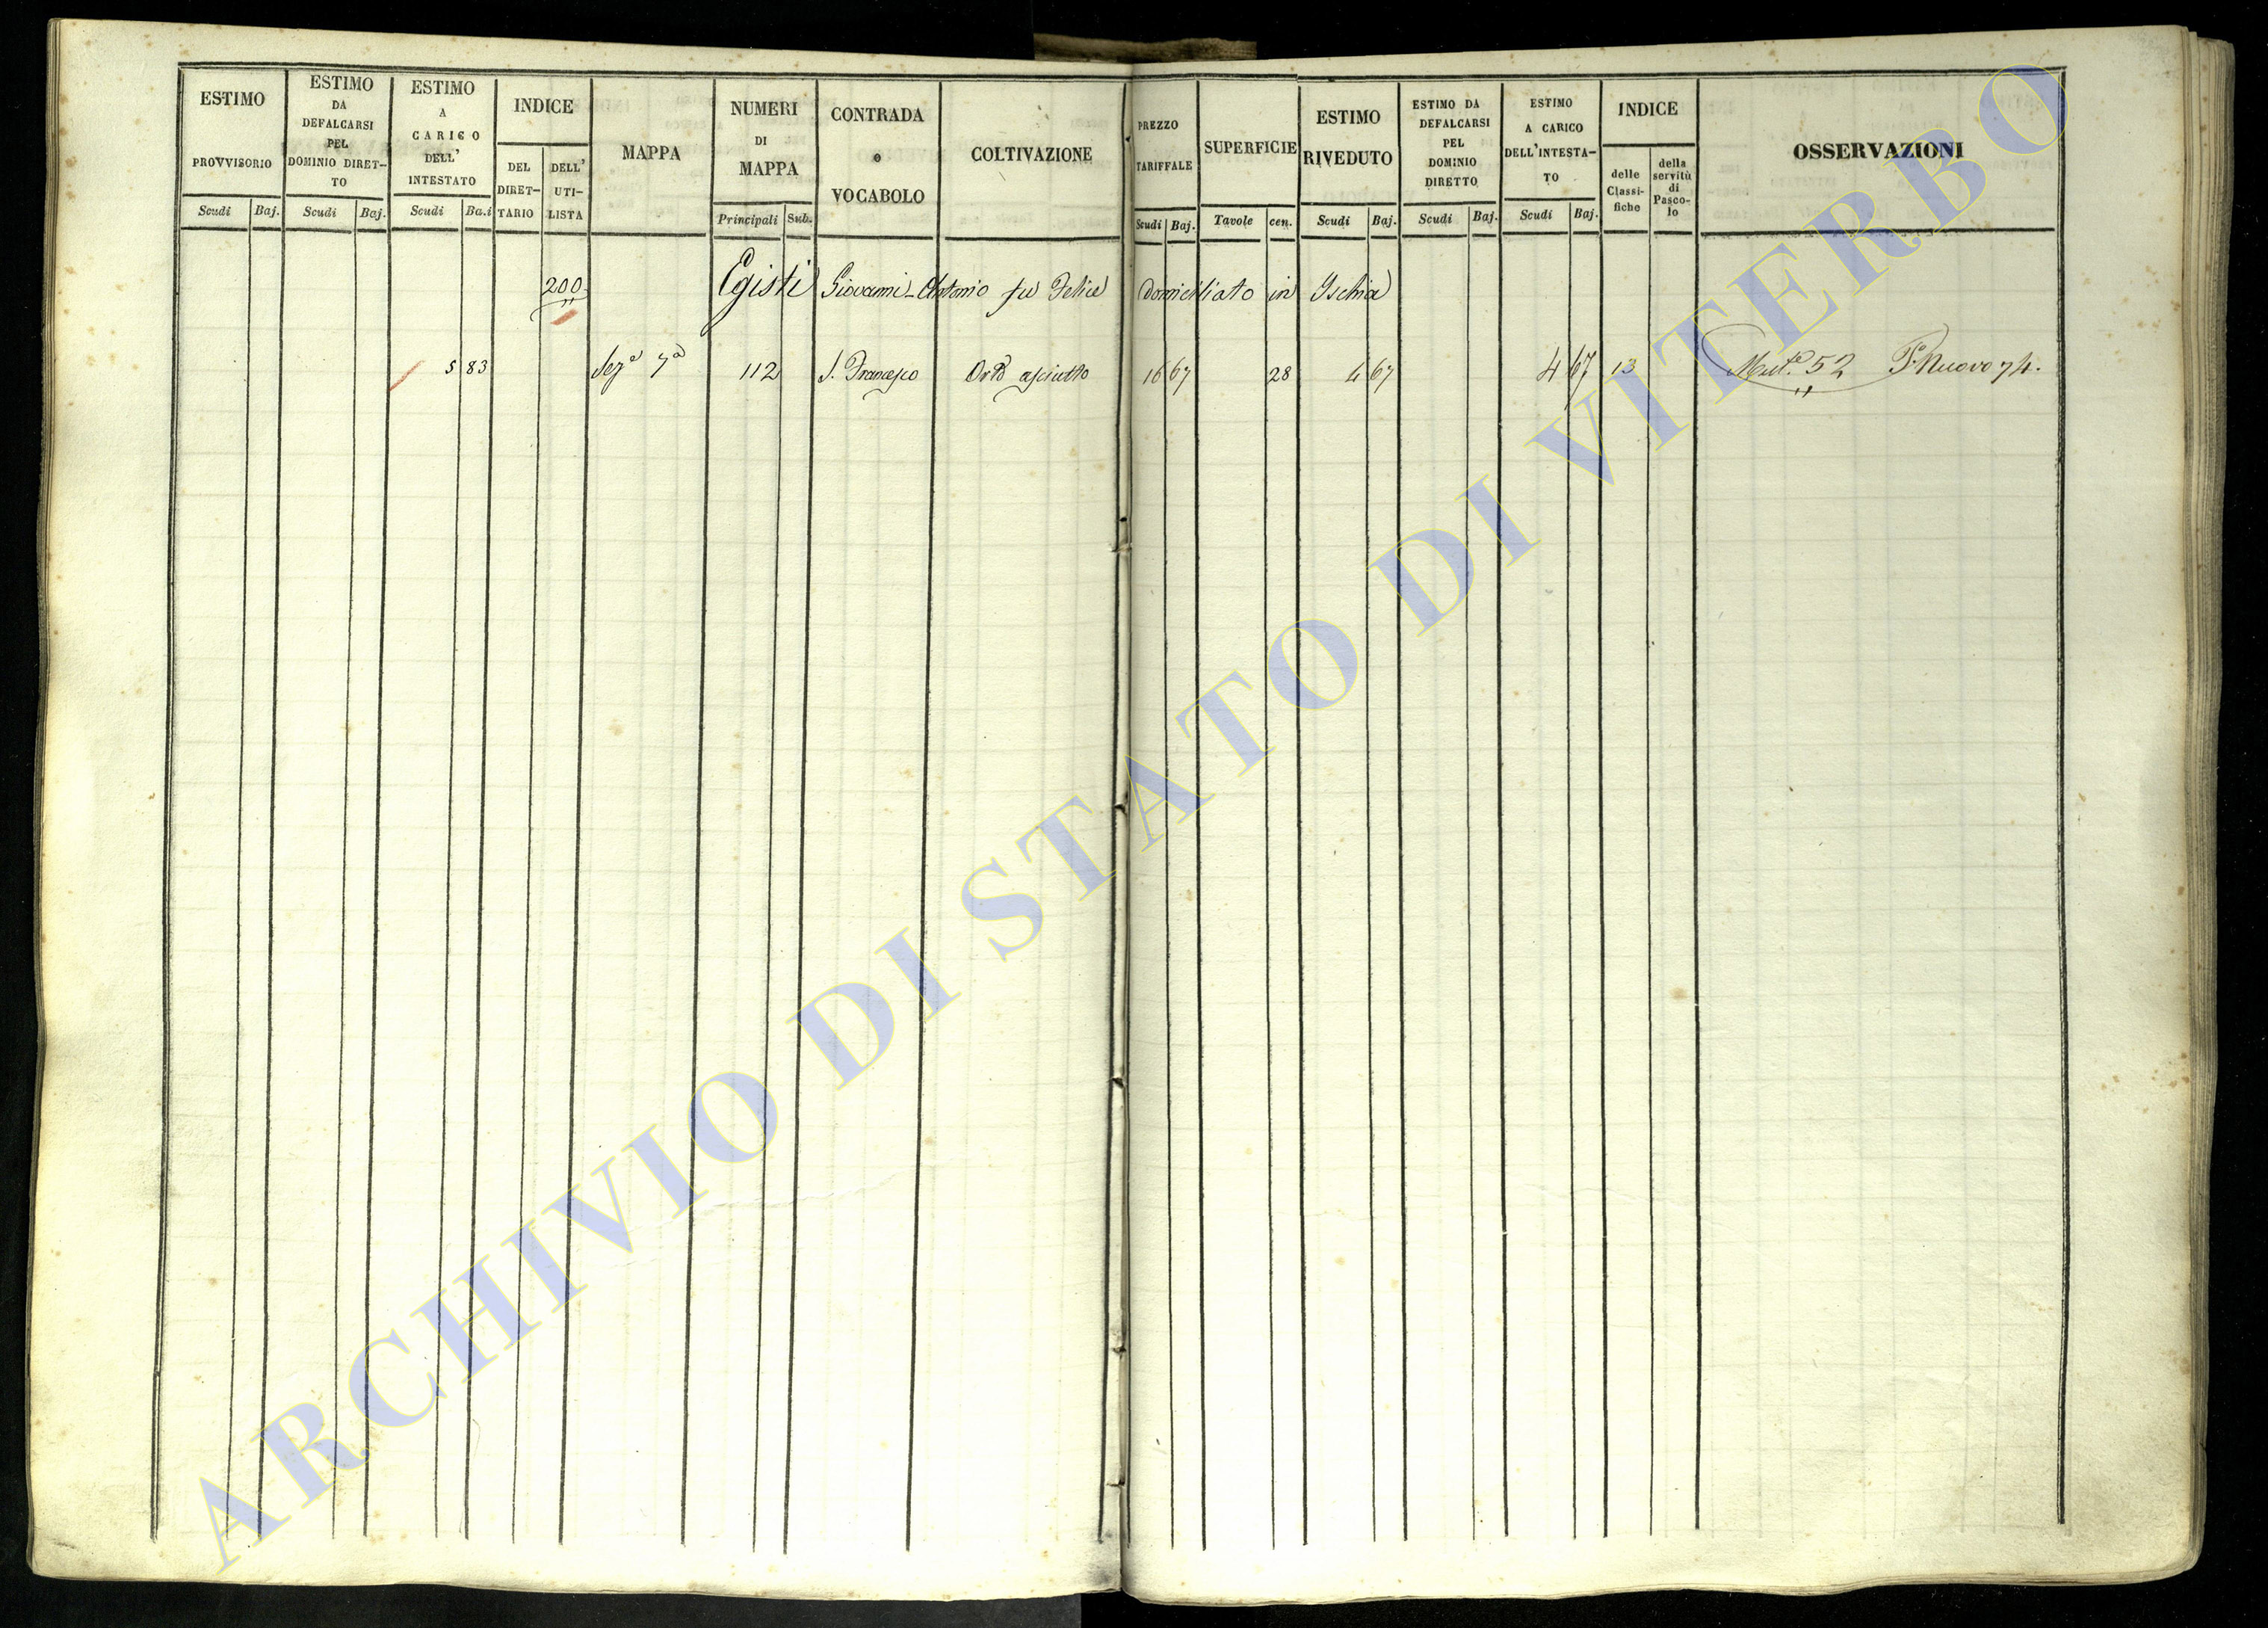 ESTIMO PROVVISORIO Scudi Baj.
ESTIMO DA DEFALCARSI PEL DOMINIO DIRET- TO Scudi Baj.
ESTIMO A CARICO DELL' INTESTATO Scudi Ba.i
INDICE DEL DIRET- TARIO DELL' UTI- LISTA
MAPPA
NUMERI DI MAPPA Principali Sub.
CONTRADA o VOCABOLO
COLTIVAZIONE
PREZZO TARIFFALE Scudi Baj.
SUPERFICIE Tavole cen.
ESTIMO RIVEDUTO Scudi Baj.
ESTIMO DA DEFALCARSI PEL DOMINIO DIRETTO Scudi Baj.
ESTIMO A CARICO DELL'INTESTA- TO Scudi Baj.
INDICE delle Classi- fiche della servitù di Pasco- lo
OSSERVAZIONI
200 Egisti Giovanni-Antonio fu Felice domiciliato in Ischia
5 83 Sez.e 7a 112 S. Francesco Orto asciutto 16 67 28 4 67 4 67 13 Mut.e 52 P. Nuovo 74.
ARCHIVIO DI STATO DI VITERBO